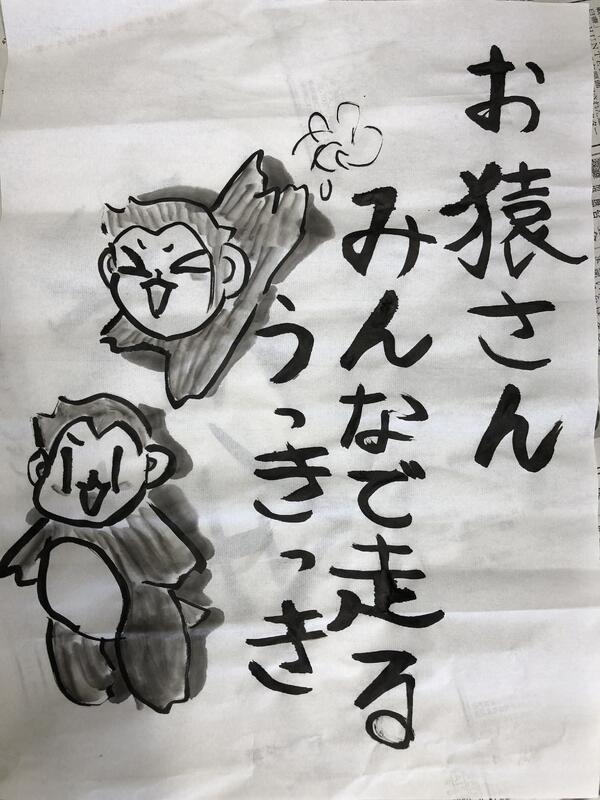 お猿さん
みんなで走る
うっきっき